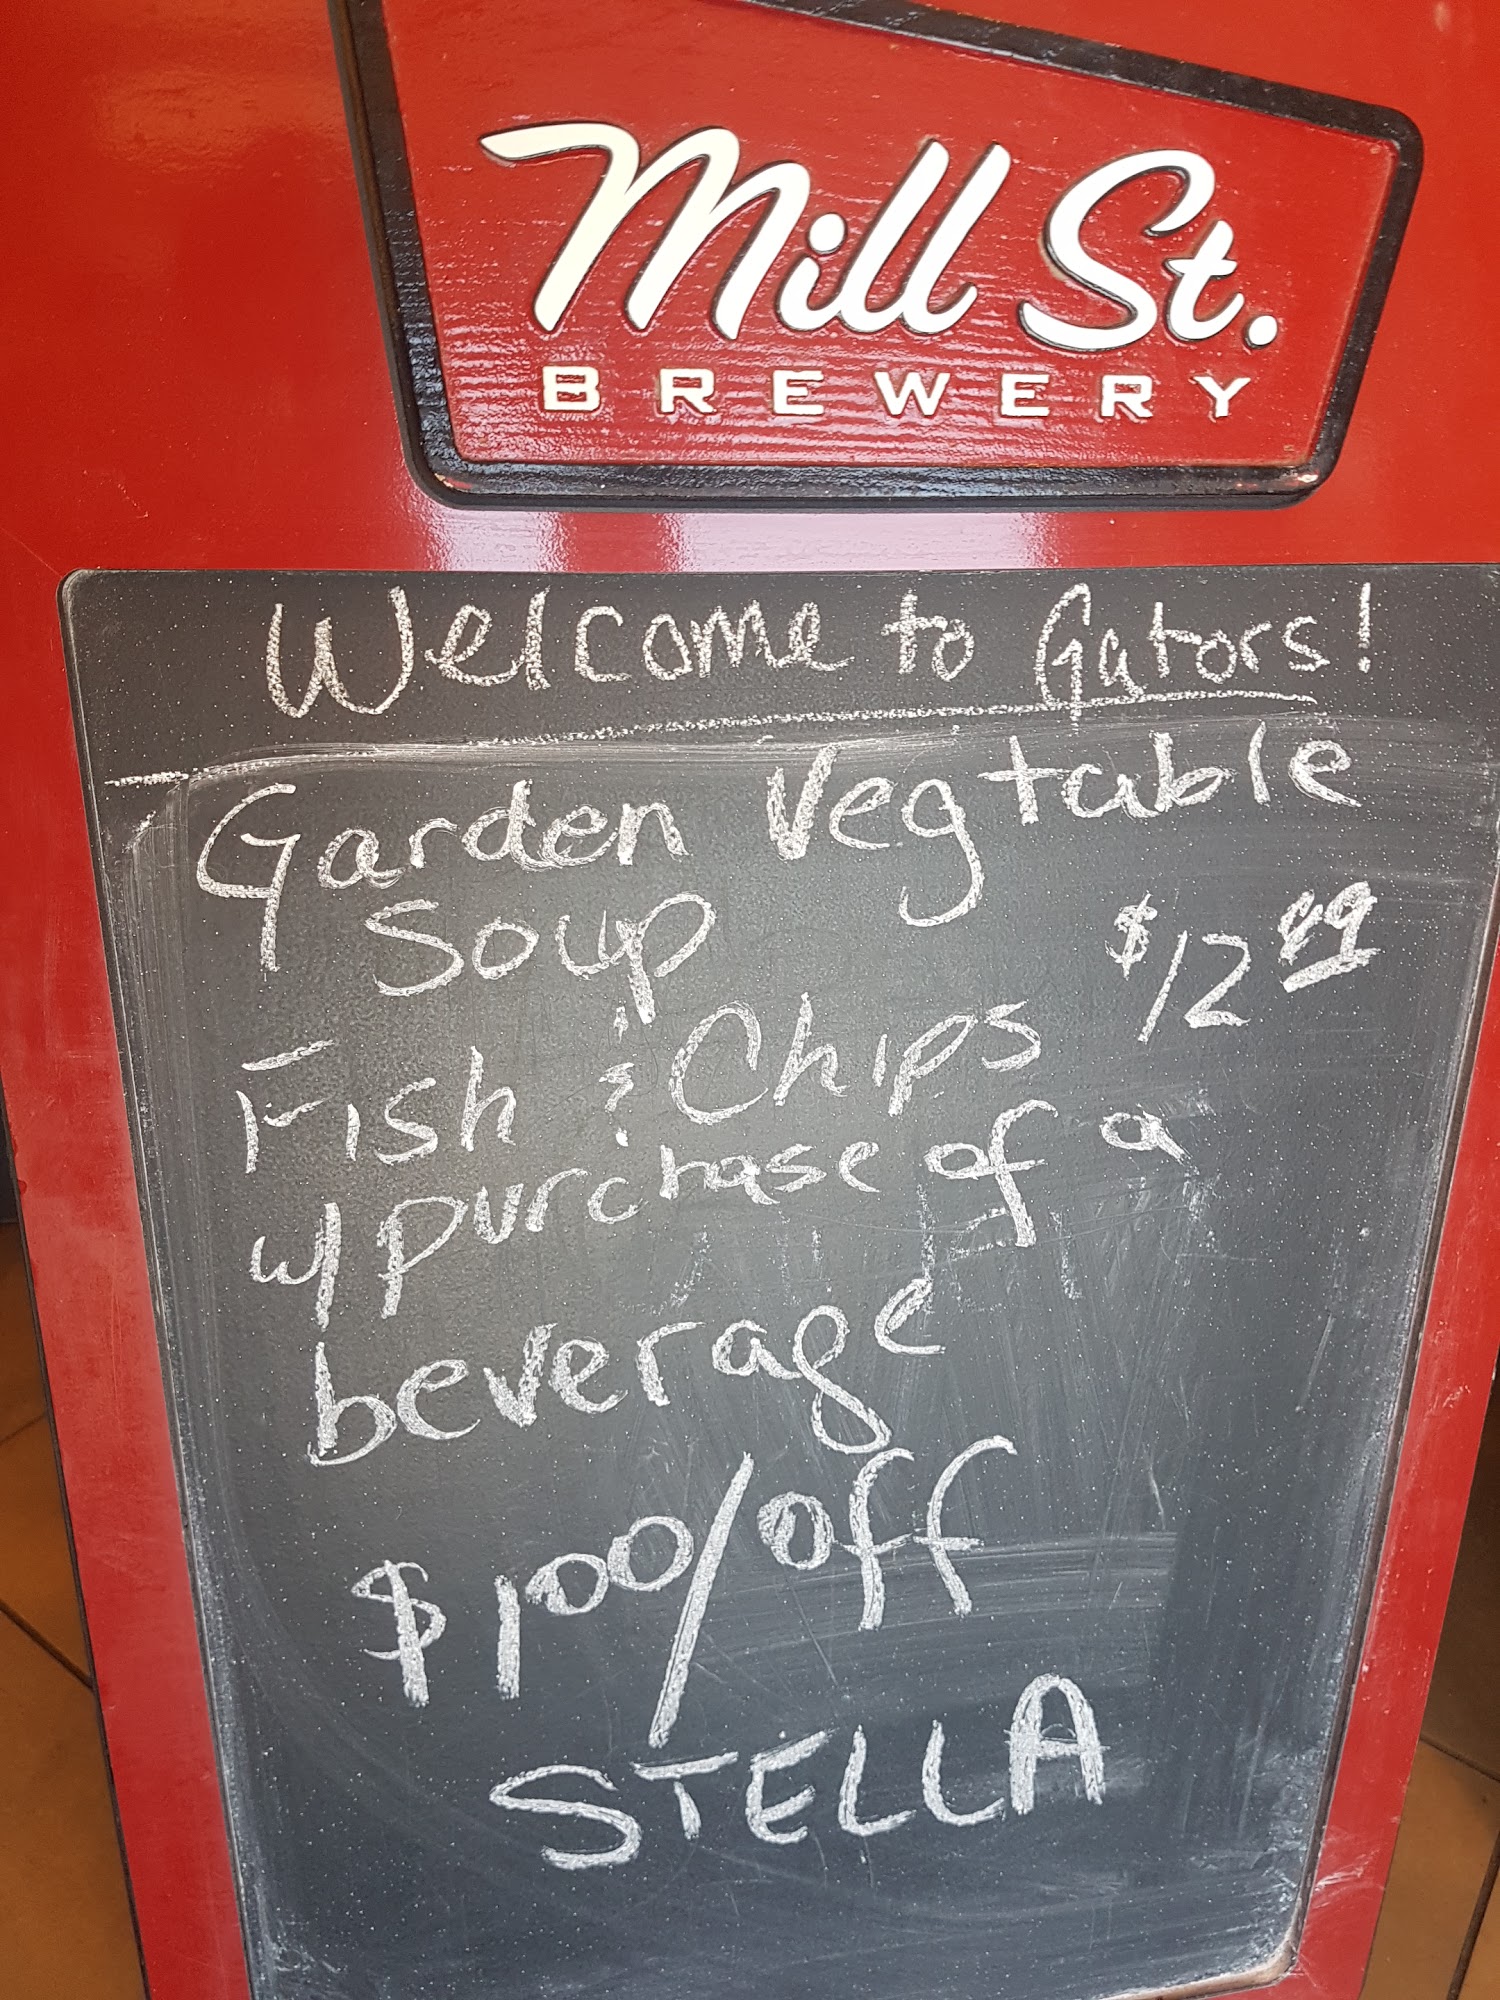 Mill St.
BREWERY
Welcome to Gators!
Garden Vegtable
Soup
Fish & Chips $12.99
w/ purchase of a
beverage
$1.00/off
STELLA